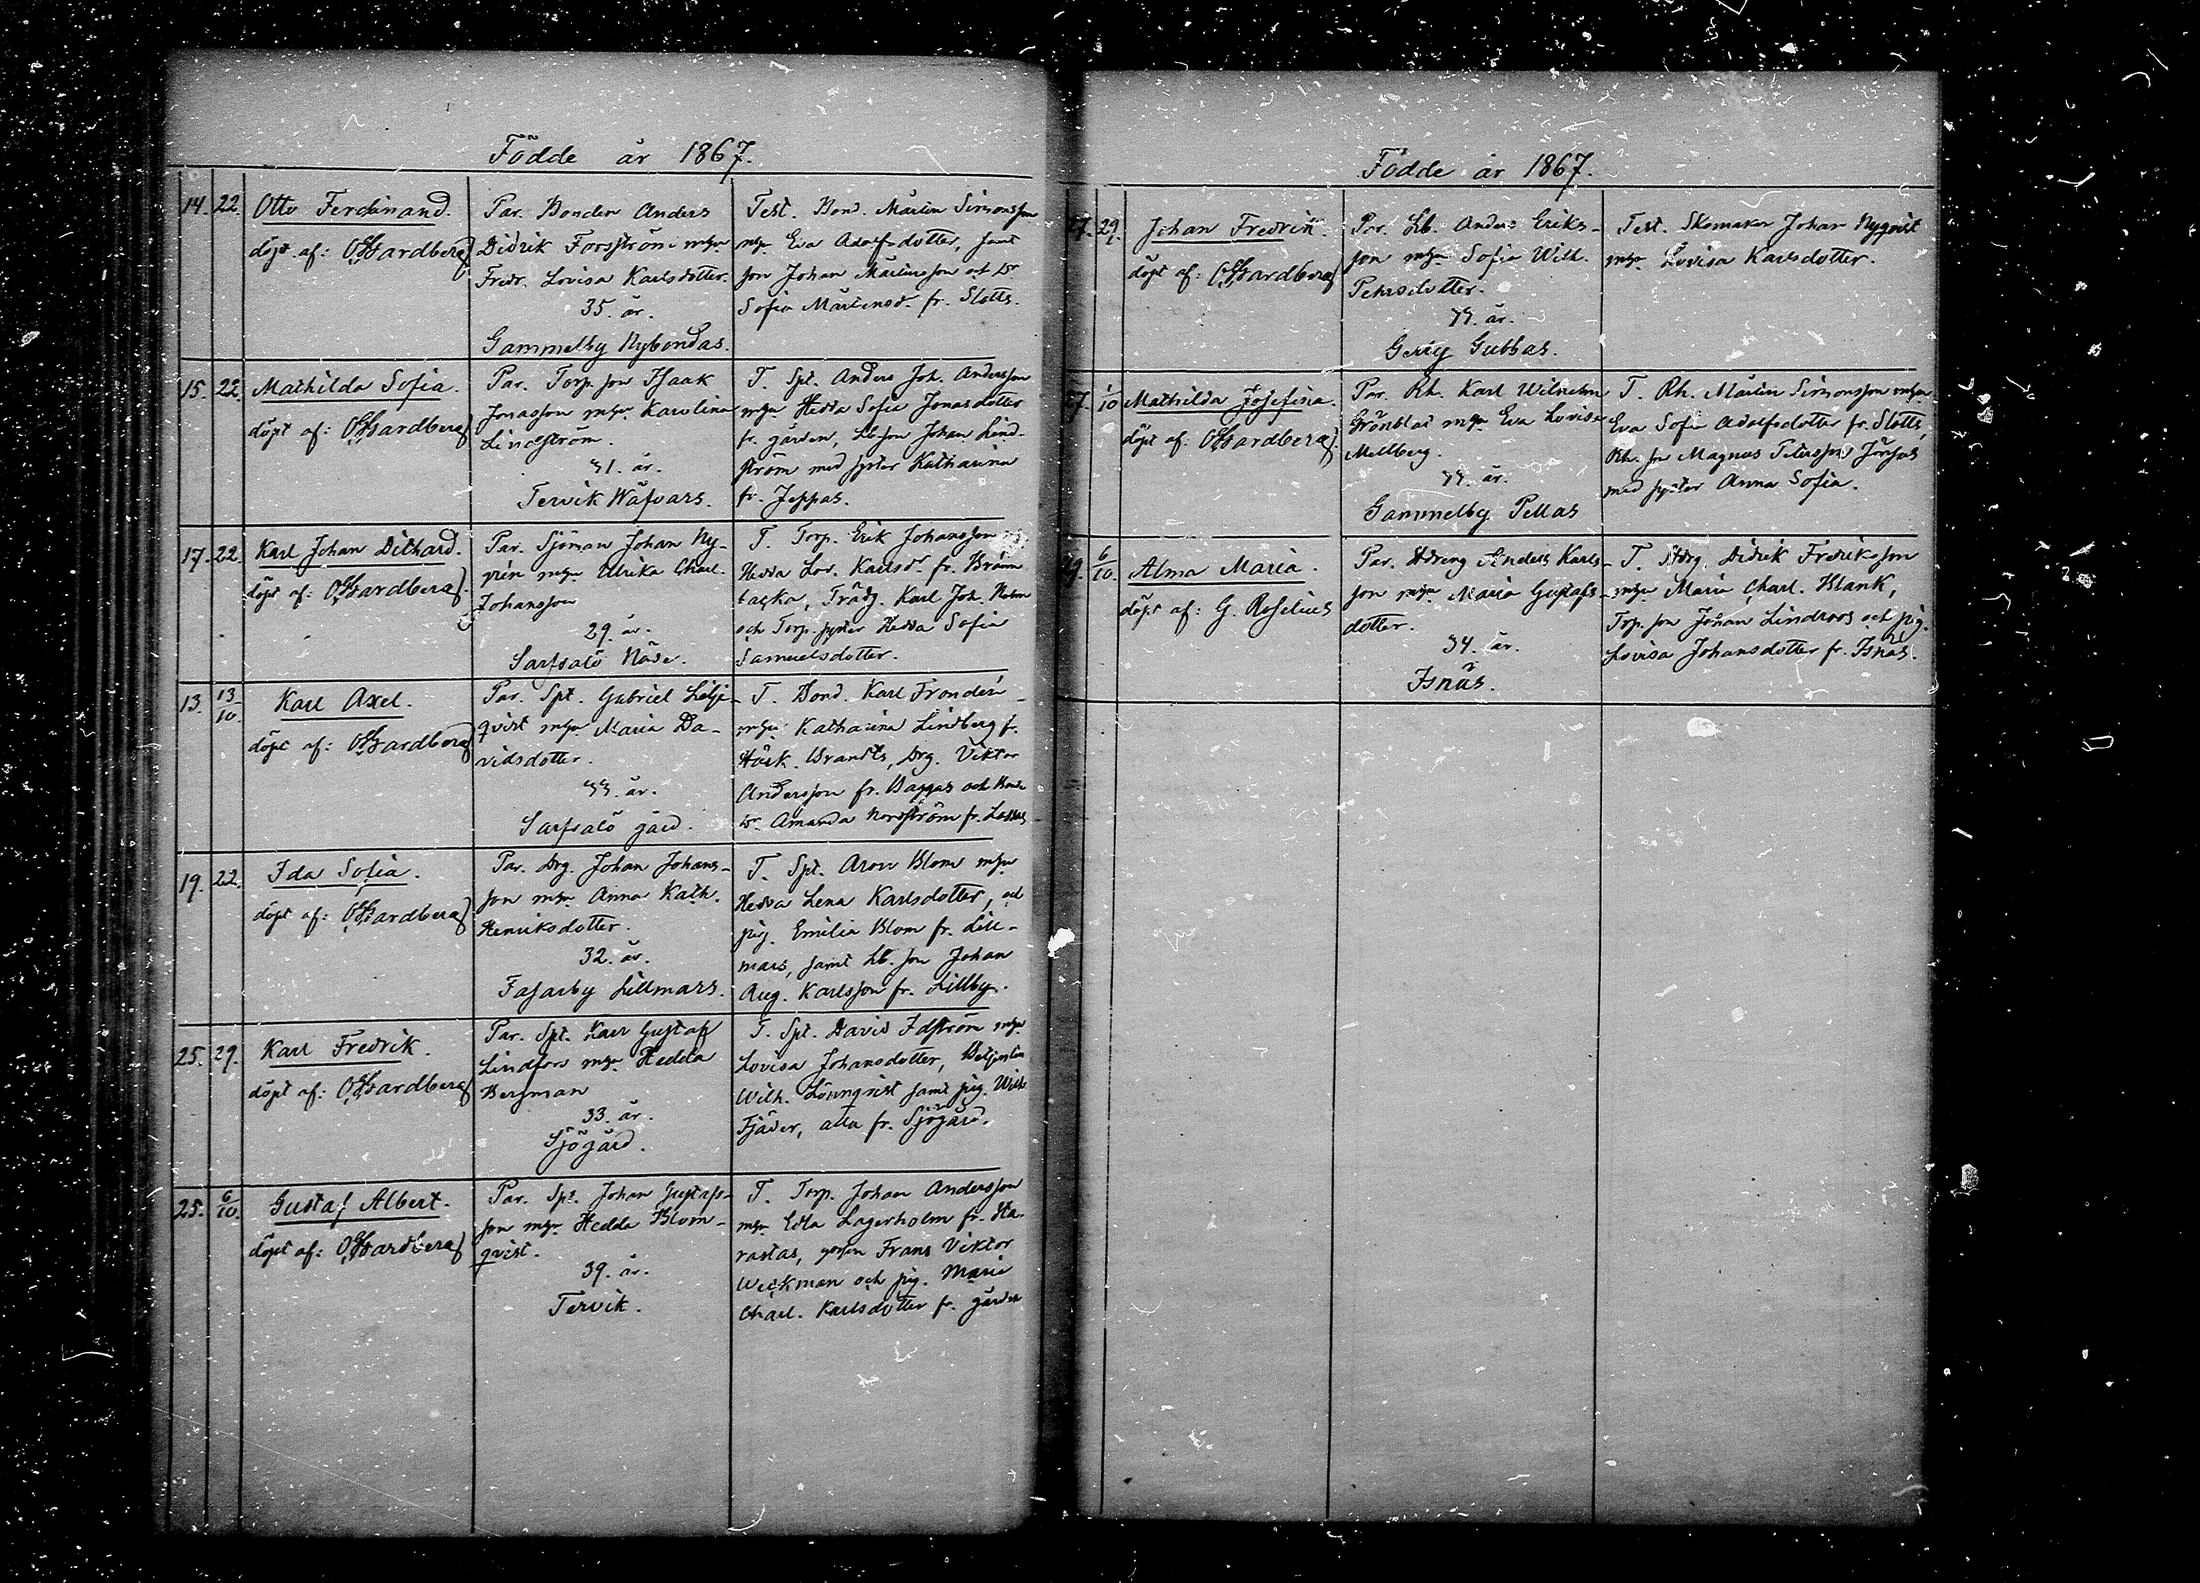 Födde år 1867.
14. 22. Otto Ferdinand.
döpt af: OHardberg
Par. Bonden Anders
Didrik Forsström m hu
Fredr. Lovisa Karlsdotter.
35. år.
Gammelby Nybondas.
Test. Bond. Mårten Simonsson
m hu Eva Adolfsdotter, samt
son Johan Mårtensson och dr
Sofia Mårtensd. fr. Slotts.
15. 22. Mathilda Sofia.
döpt af: OHardberg
Par. Torp. son Isaak
Jonasson m hu Karolina
Lindström.
31. år.
Tervik Wäfvars.
T. Spt. Anders Joh. Andersson
m hu Hedda Sofia Jonasdotter
fr. gården, Lb. son Johan Lind-
ström med syster Katharina
fr. Jeppas.
17. 22. Karl Johan Dithard.
döpt af: OHardberg
Par. Sjöman Johan Ny-
m hu Ulrika Charl.
Johansson
29. år.
Sarfsalö Näse.
T. Torp. Erik Johansson
Hedda Lov. Karlsd. fr.
backa, Trädg. Karl Joh.
och Torp. syster Hedda Sofia
Samuelsdotter.
13. 13/10. Karl Axel.
döpt af: OHardberg
Par. Spt. Gabriel Lilje-
qvist m hu Maria Da-
vidsdotter.
33. år.
Sarfsalö gård.
T. Bond. Karl Frondén
m hu Katharina Lindberg fr.
Hörk. Brandts, Drg. Viktor
Andersson fr. Baggas och Bonde
dr. Amanda Nordström fr. Lassas
19. 22. Ida Sofia.
döpt af: OHardberg
Par. Drg. Johan Johans-
son m hu Anna Kath.
Henriksdotter.
32. år.
Fasarby Lillmars.
T. Spt. Aron Blom m hu
Hedda Lena Karlsdotter, och
pig. Emilia Blom fr. Lill-
mars, samt Lb. son Johan
Aug. Karlsson fr. Lillby.
25. 29. Karl Fredrik.
döpt af: OHardberg
Par. Spt. Karl Gustaf
Lindfors m hu Hedda
Bergman
33. år.
Sjögård.
T. Spt. David Edström m hu
Lovisa Johansdotter, Betjenten
Wilh. Lönnqvist samt pig. Wilh
Fjäder, alla fr. Sjögård.
25. 6/10. Gustaf Albert.
döpt af: OHardberg
Par. Spt. Johan Gustafs-
son m hu Hedda Blom-
qvist.
39. år.
Tervik.
T. Torp. Johan Andersson
m hu Edla Lagerholm fr. Ha-
rastas, gossen Frans Viktor
Weckman och pig. Maria
Charl. Karlsdotter fr. gården
Födde år 1867.
27. 29. Johan Fredrik.
döpt af: OHardberg
Par. Lb. Anders Eriks-
son m hu Sofia Wilh.
Pehrsdotter.
33. år.
Gerby Gubbas.
Test. Skomakar Johan Nyqvist
m hu Lovisa Karlsdotter.
27. 1/10 Mathilda Josefina.
döpt af: OHardberg
Par. Rh. Karl Wilhelm
Grönblad m hu Eva Lovisa
Mellberg.
33. år.
Gammelby Pellas
T. Rh. Mårten Simonsson m hu
Eva Sofia Adolfsdotter fr. Slotts,
Rh. son Magnus Petersson
med syster Anna Sofia.
29. 6/10. Alma Maria.
döpt af: G. Roselius
Par. Hdreng Anders Karls-
son m hu Maria Gustafs-
dotter.
34. år.
Isnäs.
T. Hdrg. Didrik Fredriksson
m hu Maria Charl. Blank,
Torp. son Johan Lindroos och pig.
Lovisa Johansdotter fr. Isnäs.